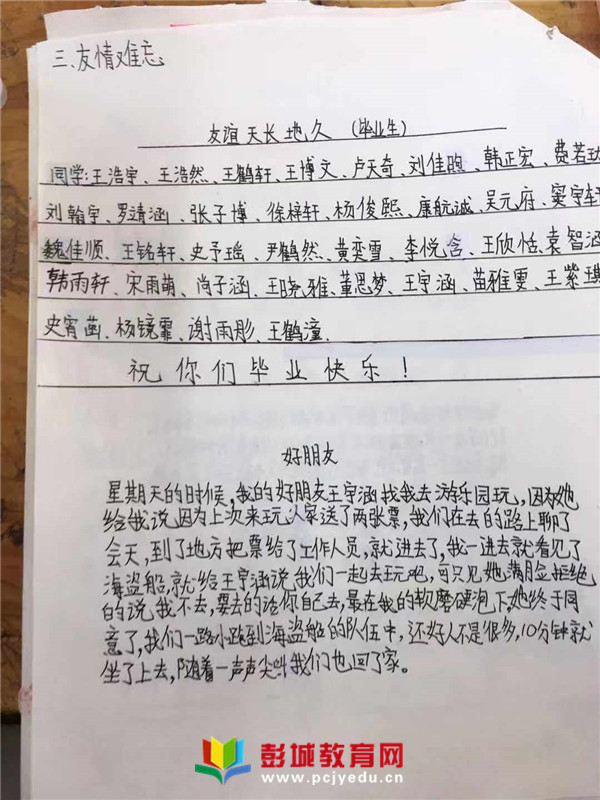 三、友情难忘
友谊天长地久 (毕业生)
同学:王浩宇、王浩然、王鹤轩、王博文、卢天奇、刘佳煦、韩正宏、费若
刘翰宇、罗靖涵、张子博、徐梓轩、杨俊熙、康航诚、吴元府、窦宇轩
魏佳顺、王铭轩、史予瑶、尹鹤然、黄奕雪、李悦含、王欣恬、袁智涵
韩雨轩、宋雨萌、尚子涵、王晓雅、董思梦、王宇涵、苗雅雯、王紫琪
史宵菡、杨镜霏、谢雨彤、王鹤潼.
祝你们毕业快乐!
好朋友
星期天的时候,我的好朋友王宇涵找我去游乐园玩,因为她
给我说因为上次来玩人家送了两张票,我们在去的路上聊了
会天,到了地方把票给了工作人员,就进去了,我一进去就看见了
海盗船,就给王宇涵说,我们一起去玩吧,可只见她满脸拒绝
的说我不去,要去的话你自己去,最在我的软磨硬泡下她终于同
意了,我们一路小跑到海盗船的队伍中,还好人不是很多,10分钟就
坐了上去,随着一声声尖叫我们也回了家。
彭城教育网
www.pcjyedu.cn